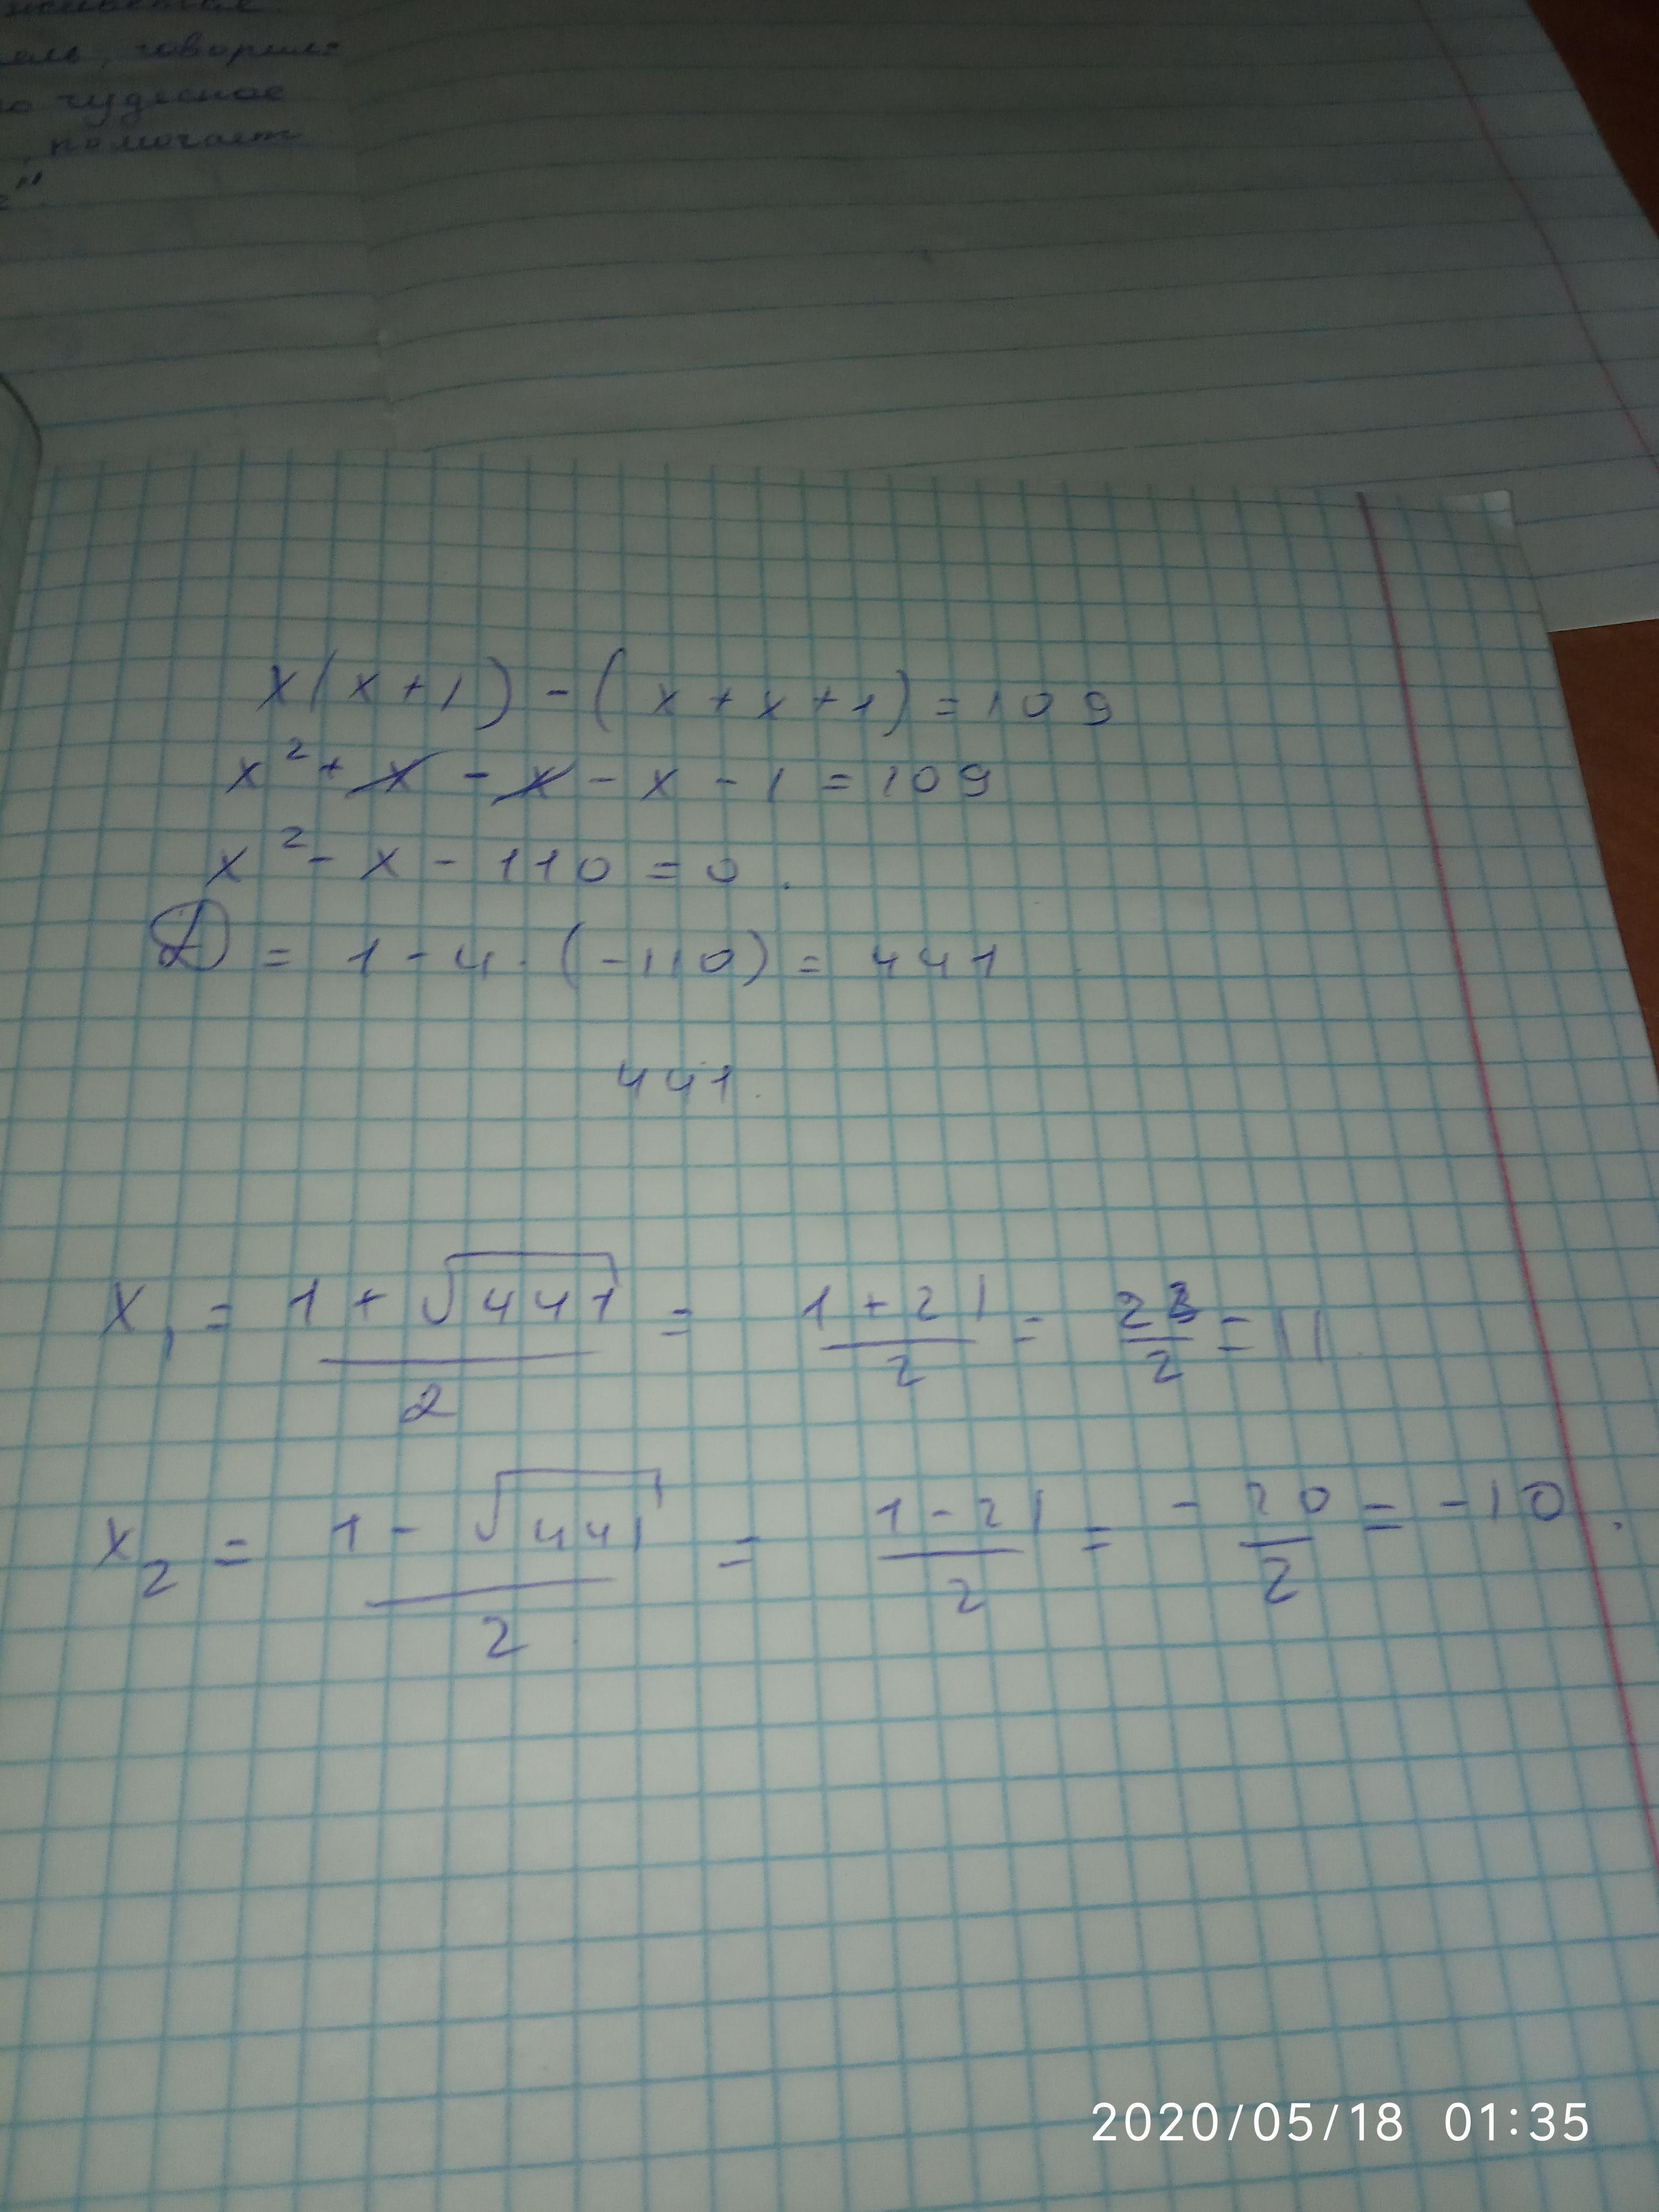 говорил:
чудесное
помогает
x(x+1)-(x+x+1)=109
x²+x-x-x-1=109
x²-x-110=0.
D=1-4·(-110)=441
441.
x₁ = (1+√441)/2 = (1+21)/2 = 22/2 = 11
x₂ = (1-√441)/2 = (1-21)/2 = -20/2 = -10.
2020/05/18 01:35